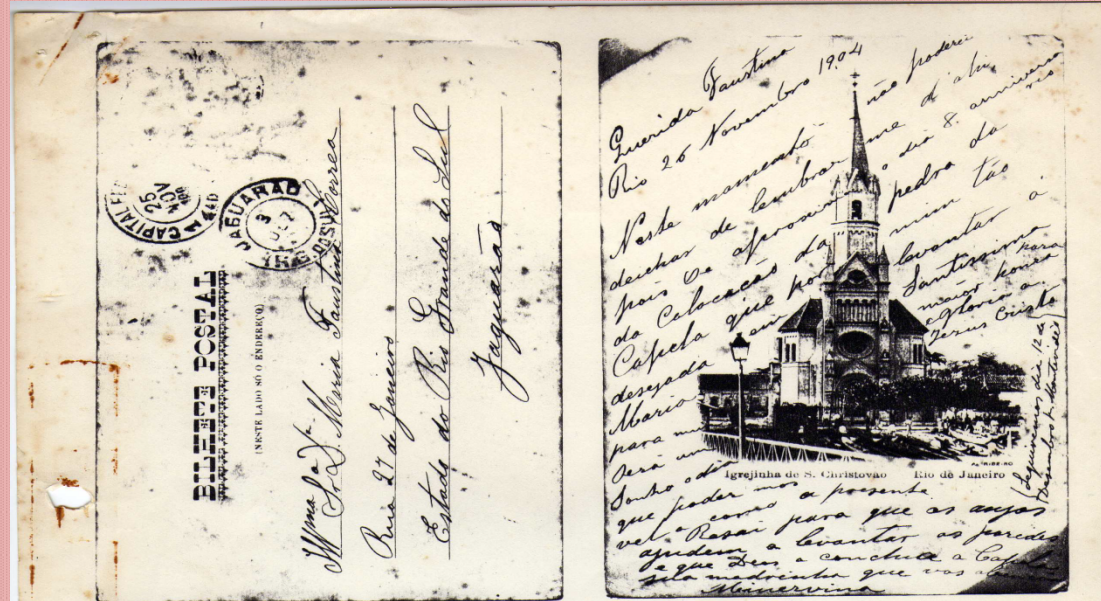 CAPITAL FED
25
NOV
JAGUARÃO
3
DEZ
BILHETE POSTAL
(NESTE LADO SÓ O ENDEREÇO)
Illma Sra Da Maria Faustina Correa
Rua 27 de Janeiro
Estado do Rio Grande do Sul
Jaguarão
Querida Faustina
Rio 26 Novembro 1904
Neste momento não poderei
deichar de lembrar-me
pois se aproxima o dia 8 anniversa
rio
da Colocacão da pedra da
Capela que por mim tão
desejada levantar a
Maria Santissima
para maior honra
e Gloria a
Será um Jesus Cristo
Sonho
que poder mos a presente
Resai para que os anjos
ajudem a levantar as paredes
e que Deus a conclua a
madrinha que vos
Minervina
(Seguimos dia 12 de
Igrejinha de S. Christovão Rio de Janeiro
RIBEIRO